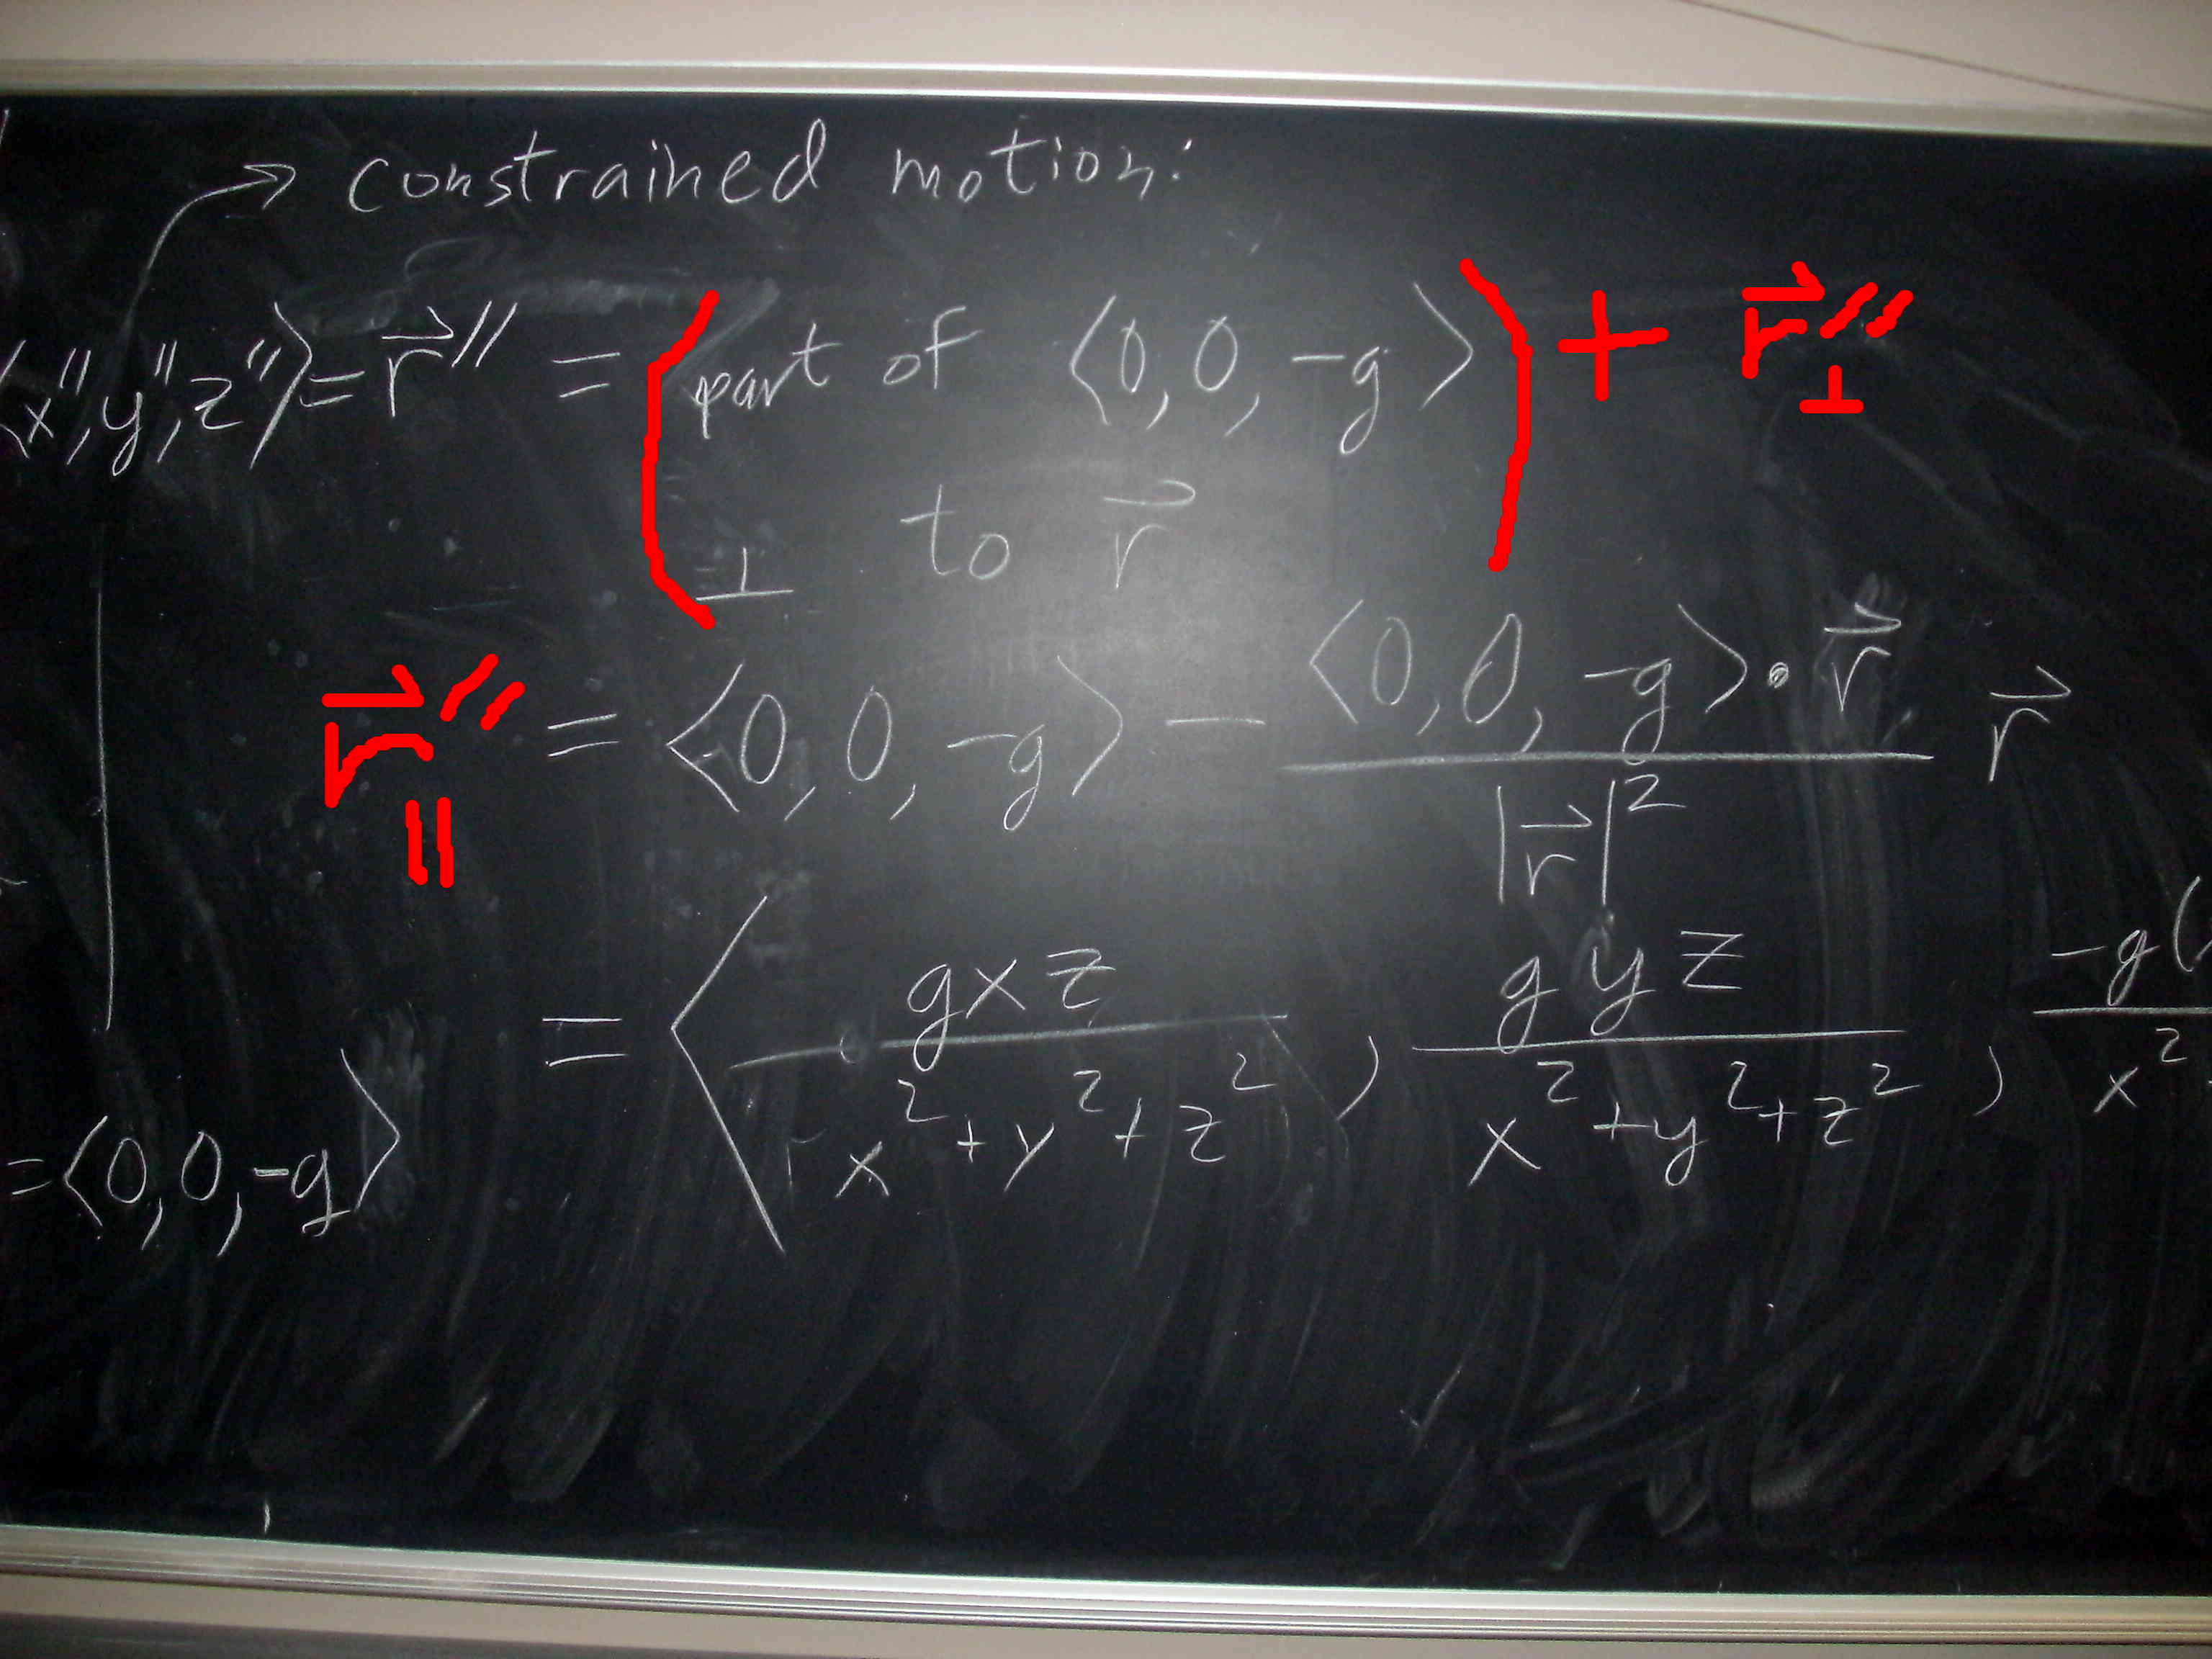 constrained motion:
⟨x″, y″, z″⟩ = r⃗″ = (part of ⟨0, 0, -g⟩) + r⃗″⊥
⊥ to r⃗
r⃗″∥ = ⟨0, 0, -g⟩ - ⟨0, 0, -g⟩ • r⃗ / |r⃗|² r⃗
= ⟨ gxz / x² + y² + z² , gyz / x² + y² + z² , -g( / x²
= ⟨0, 0, -g⟩